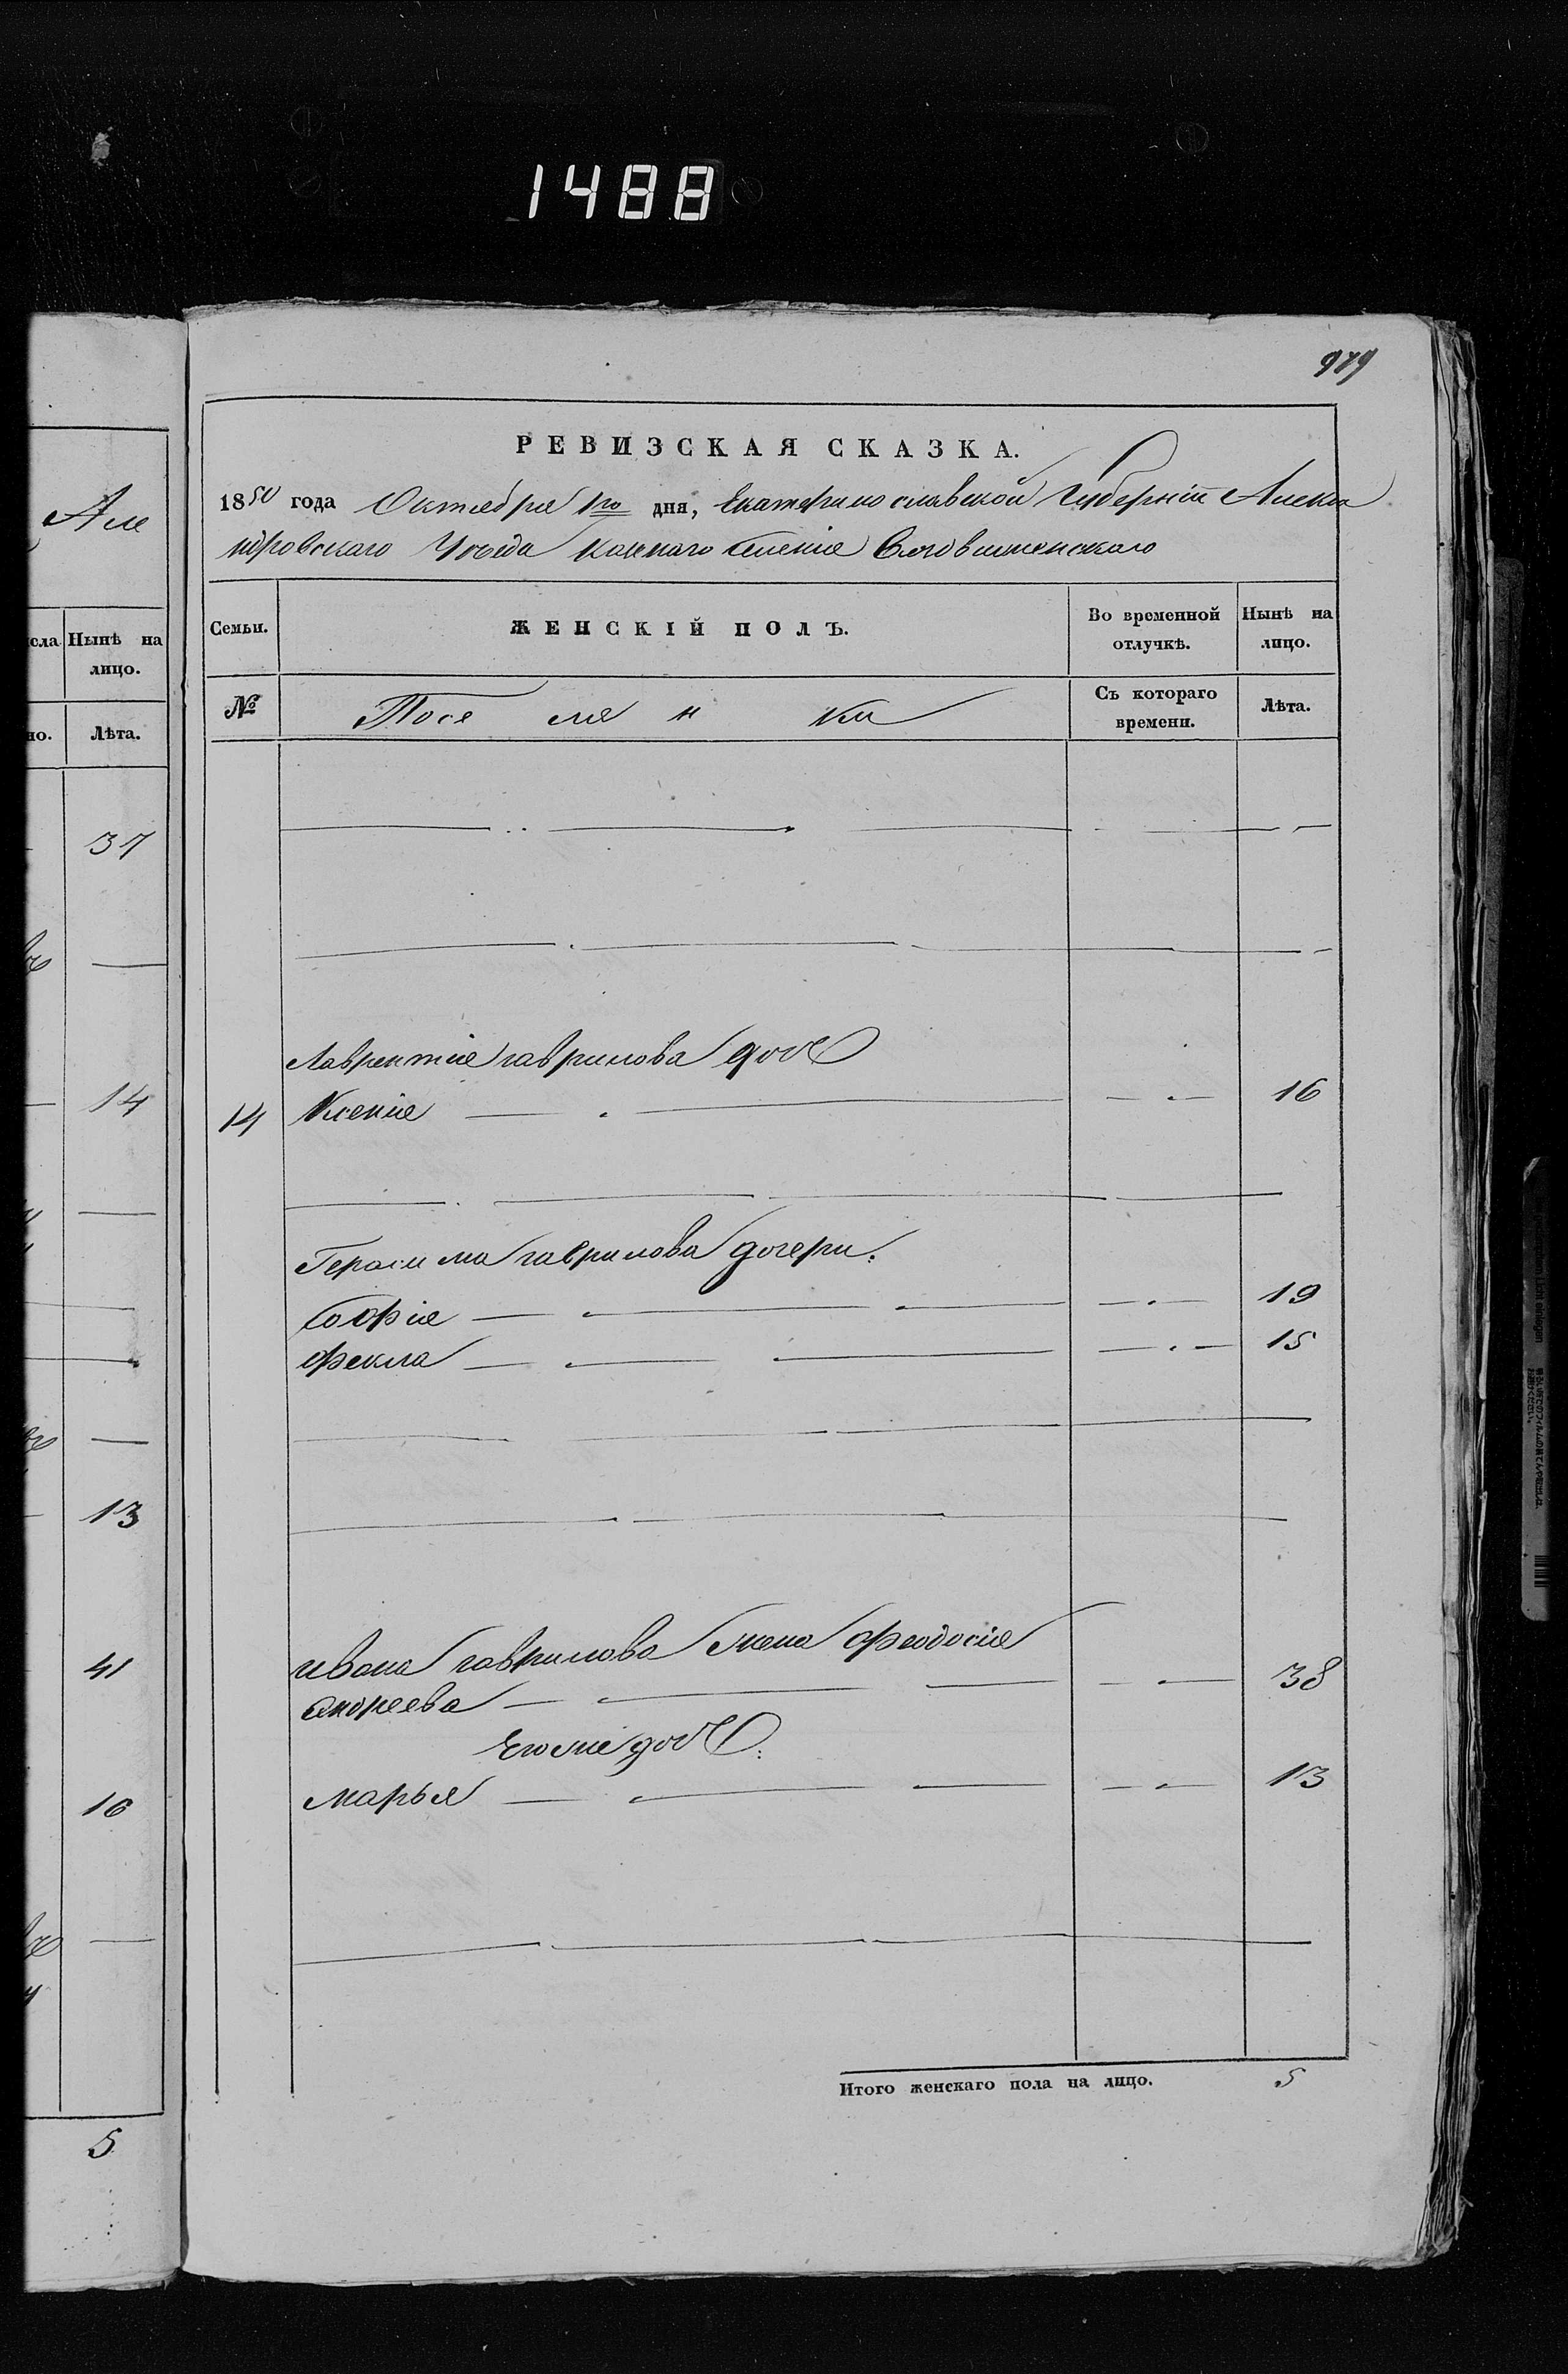 1488
979
Але
РЕВИЗСКАЯ СКАЗКА.
1850 года Октября 1го дня, Екатеринославской Губерніи Алекса
ндровскаго Уезда Казенаго Селенія Благовещенскаго
сла Нынѣ на
лицо.
но. Лѣта.
37
14
13
41
16
5
Семьи. ЖЕНСКІЙ ПОЛЪ. Во временной отлучкѣ. Нынѣ на лицо.
№ Поселянки Съ котораго времени. Лѣта.
Лаврентія гаврилова доч
14 Ксенія 16
Герасима гаврилова дочери:
Софія 19
Фекла 15
ивана гаврилова жена Феодосія
андреева 38
Егоже доч:
Марья 13
Итого женскаго пола на лицо. 5